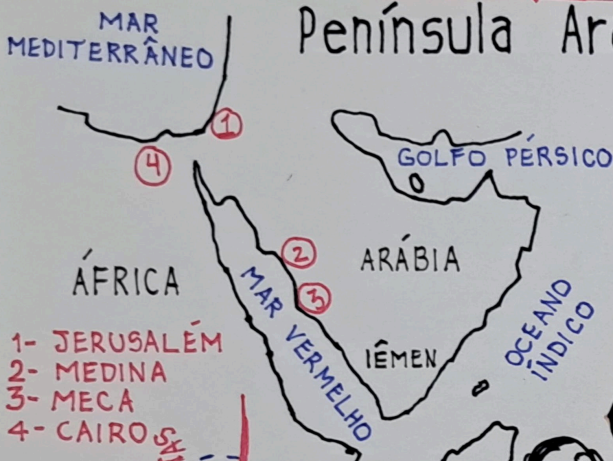 MAR
MEDITERRÂNEO
Península Ar
1
4
GOLFO PÉRSICO
2
ARÁBIA
ÁFRICA
MAR VERMELHO
3
OCEANO
ÍNDICO
IÊMEN
1- JERUSALÉM
2- MEDINA
3- MECA
4- CAIRO